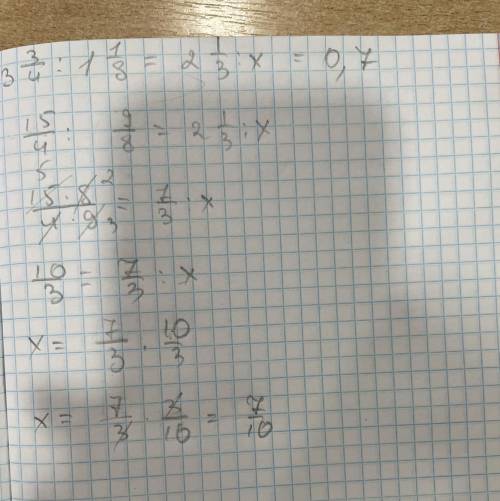 3 3/4 : 1 1/8 = 2 1/3 : x = 0,7
15/4 : 9/8 = 2 1/3 : x
15 5 · 8 2 / 4 · 9 3 = 7/3 : x
10/3 = 7/3 : x
x = 7/3 : 10/3
x = 7/3 · 3/10 = 7/10